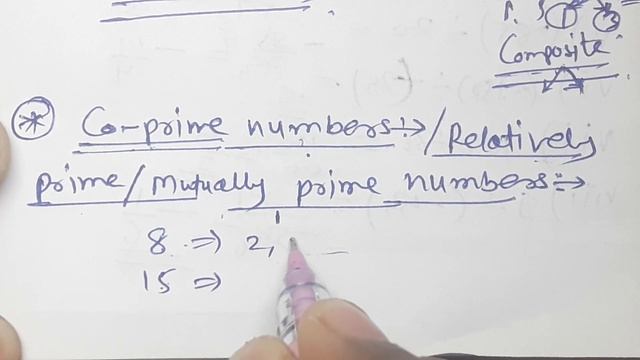 Composite
* Co-prime numbers :→ / Relatively
prime / Mutually prime numbers :→
8 ⇒ 2,
15 ⇒